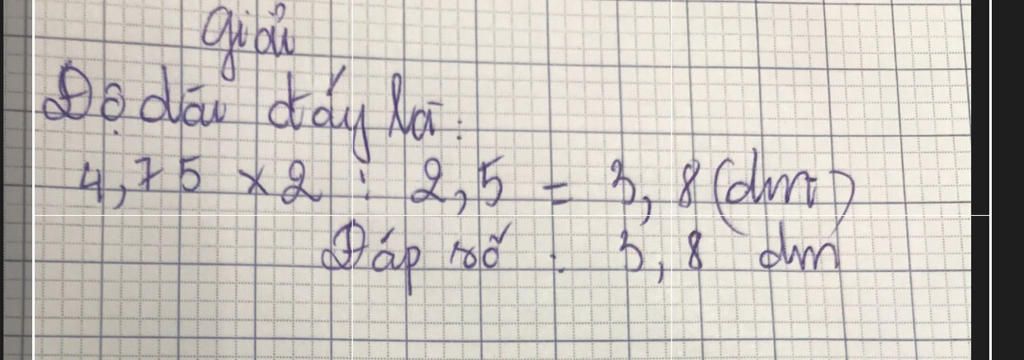 Giải
Độ dài đáy là:
4,75 x 2 : 2,5 = 3,8 (dm)
Đáp số : 3,8 dm